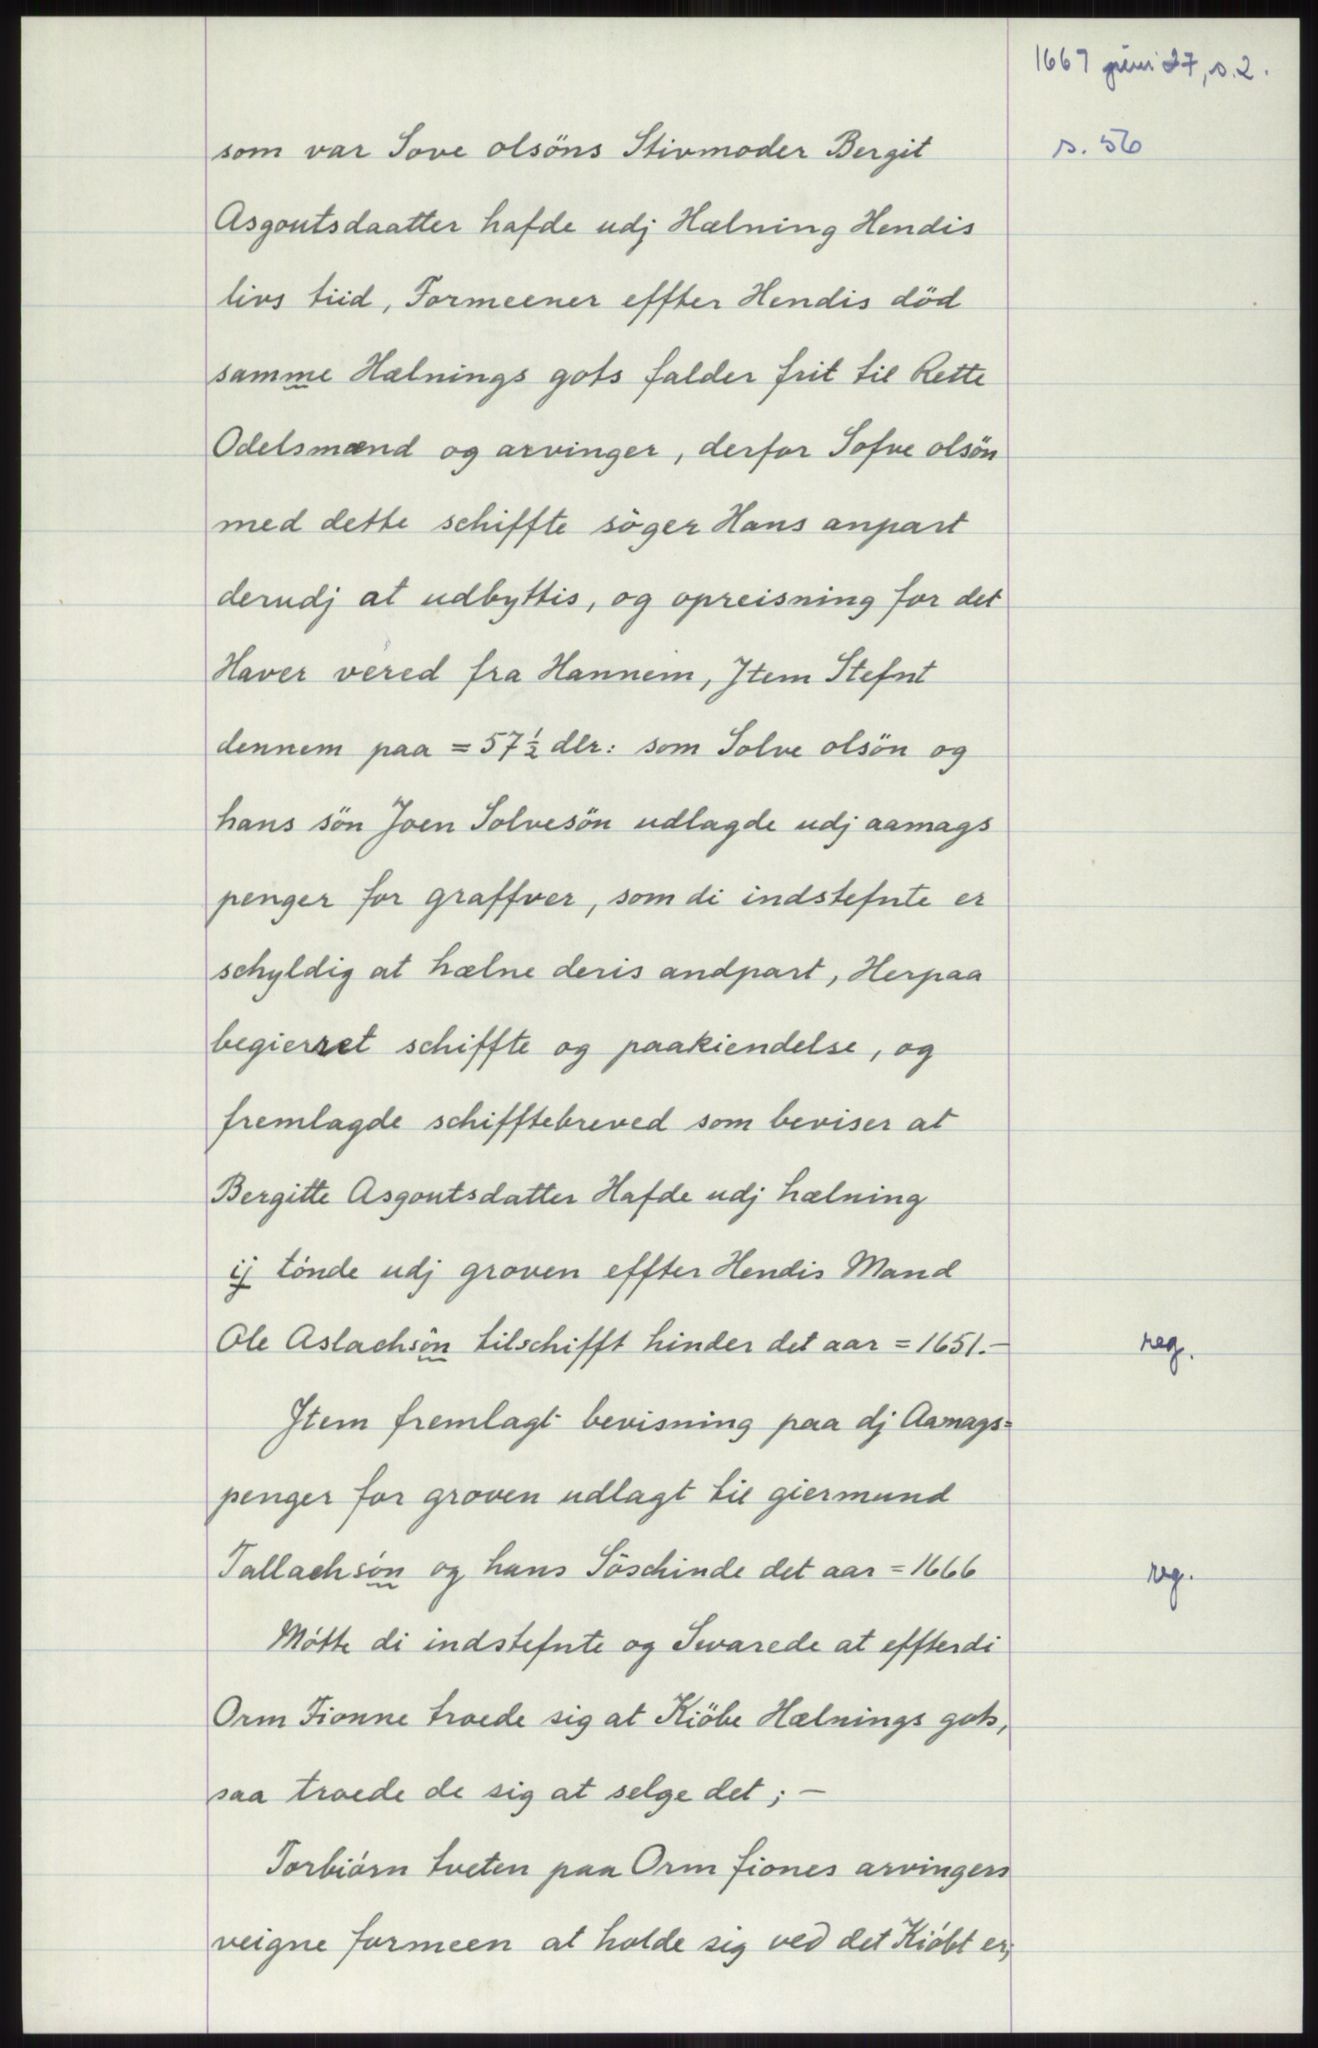 1667 juni 27, s. 2.
s. 56
som var Sove olsöns Stivmoder Bergit
Asgoutsdaatter hafde udj Hælning Hendis
livs tiid, Formeener effter Hendis död
samme Hælnings gots falder frit til Rette
Odelsmænd og arvinger, derfor Sofve olsön
med dette schiffte söger Hans anpart
derudj at udbyttis, og opreisning for det
Haver vered fra Hannem, Jtem Stefnt
dennem paa = 57 1/2 dlr: som Solve olsön og
hans sön Joen Solvesön udlagde udj aamags
penger for graffver, som di indstefnte er
schyldig at hælne deris andpart, Herpaa
begierret schiffte og paakiendelse, og
fremlagde schifftebreved som beviser at
Bergitte Asgoutsdatter Hafde udj hælning
ij tönde udj groven effter Hendis Mand
Ole Aslachsön tilschifft hinder det aar = 1651.-
reg.
Jtem fremlagt bevisning paa dj Aamags=
penger for groven udlagt til giermund
Tallachsón og hans Söschinde det aar = 1666
reg.
Mótte di indstefnte og Swarede at effterdi
Orm Fionne troede sig at Kiöbe Hælnings gots,
saa troede de sig at selge det; -
Torbiórn tveten paa Orm fiones arvingers
veigne formeen at holde sig ved det Kióbt er;